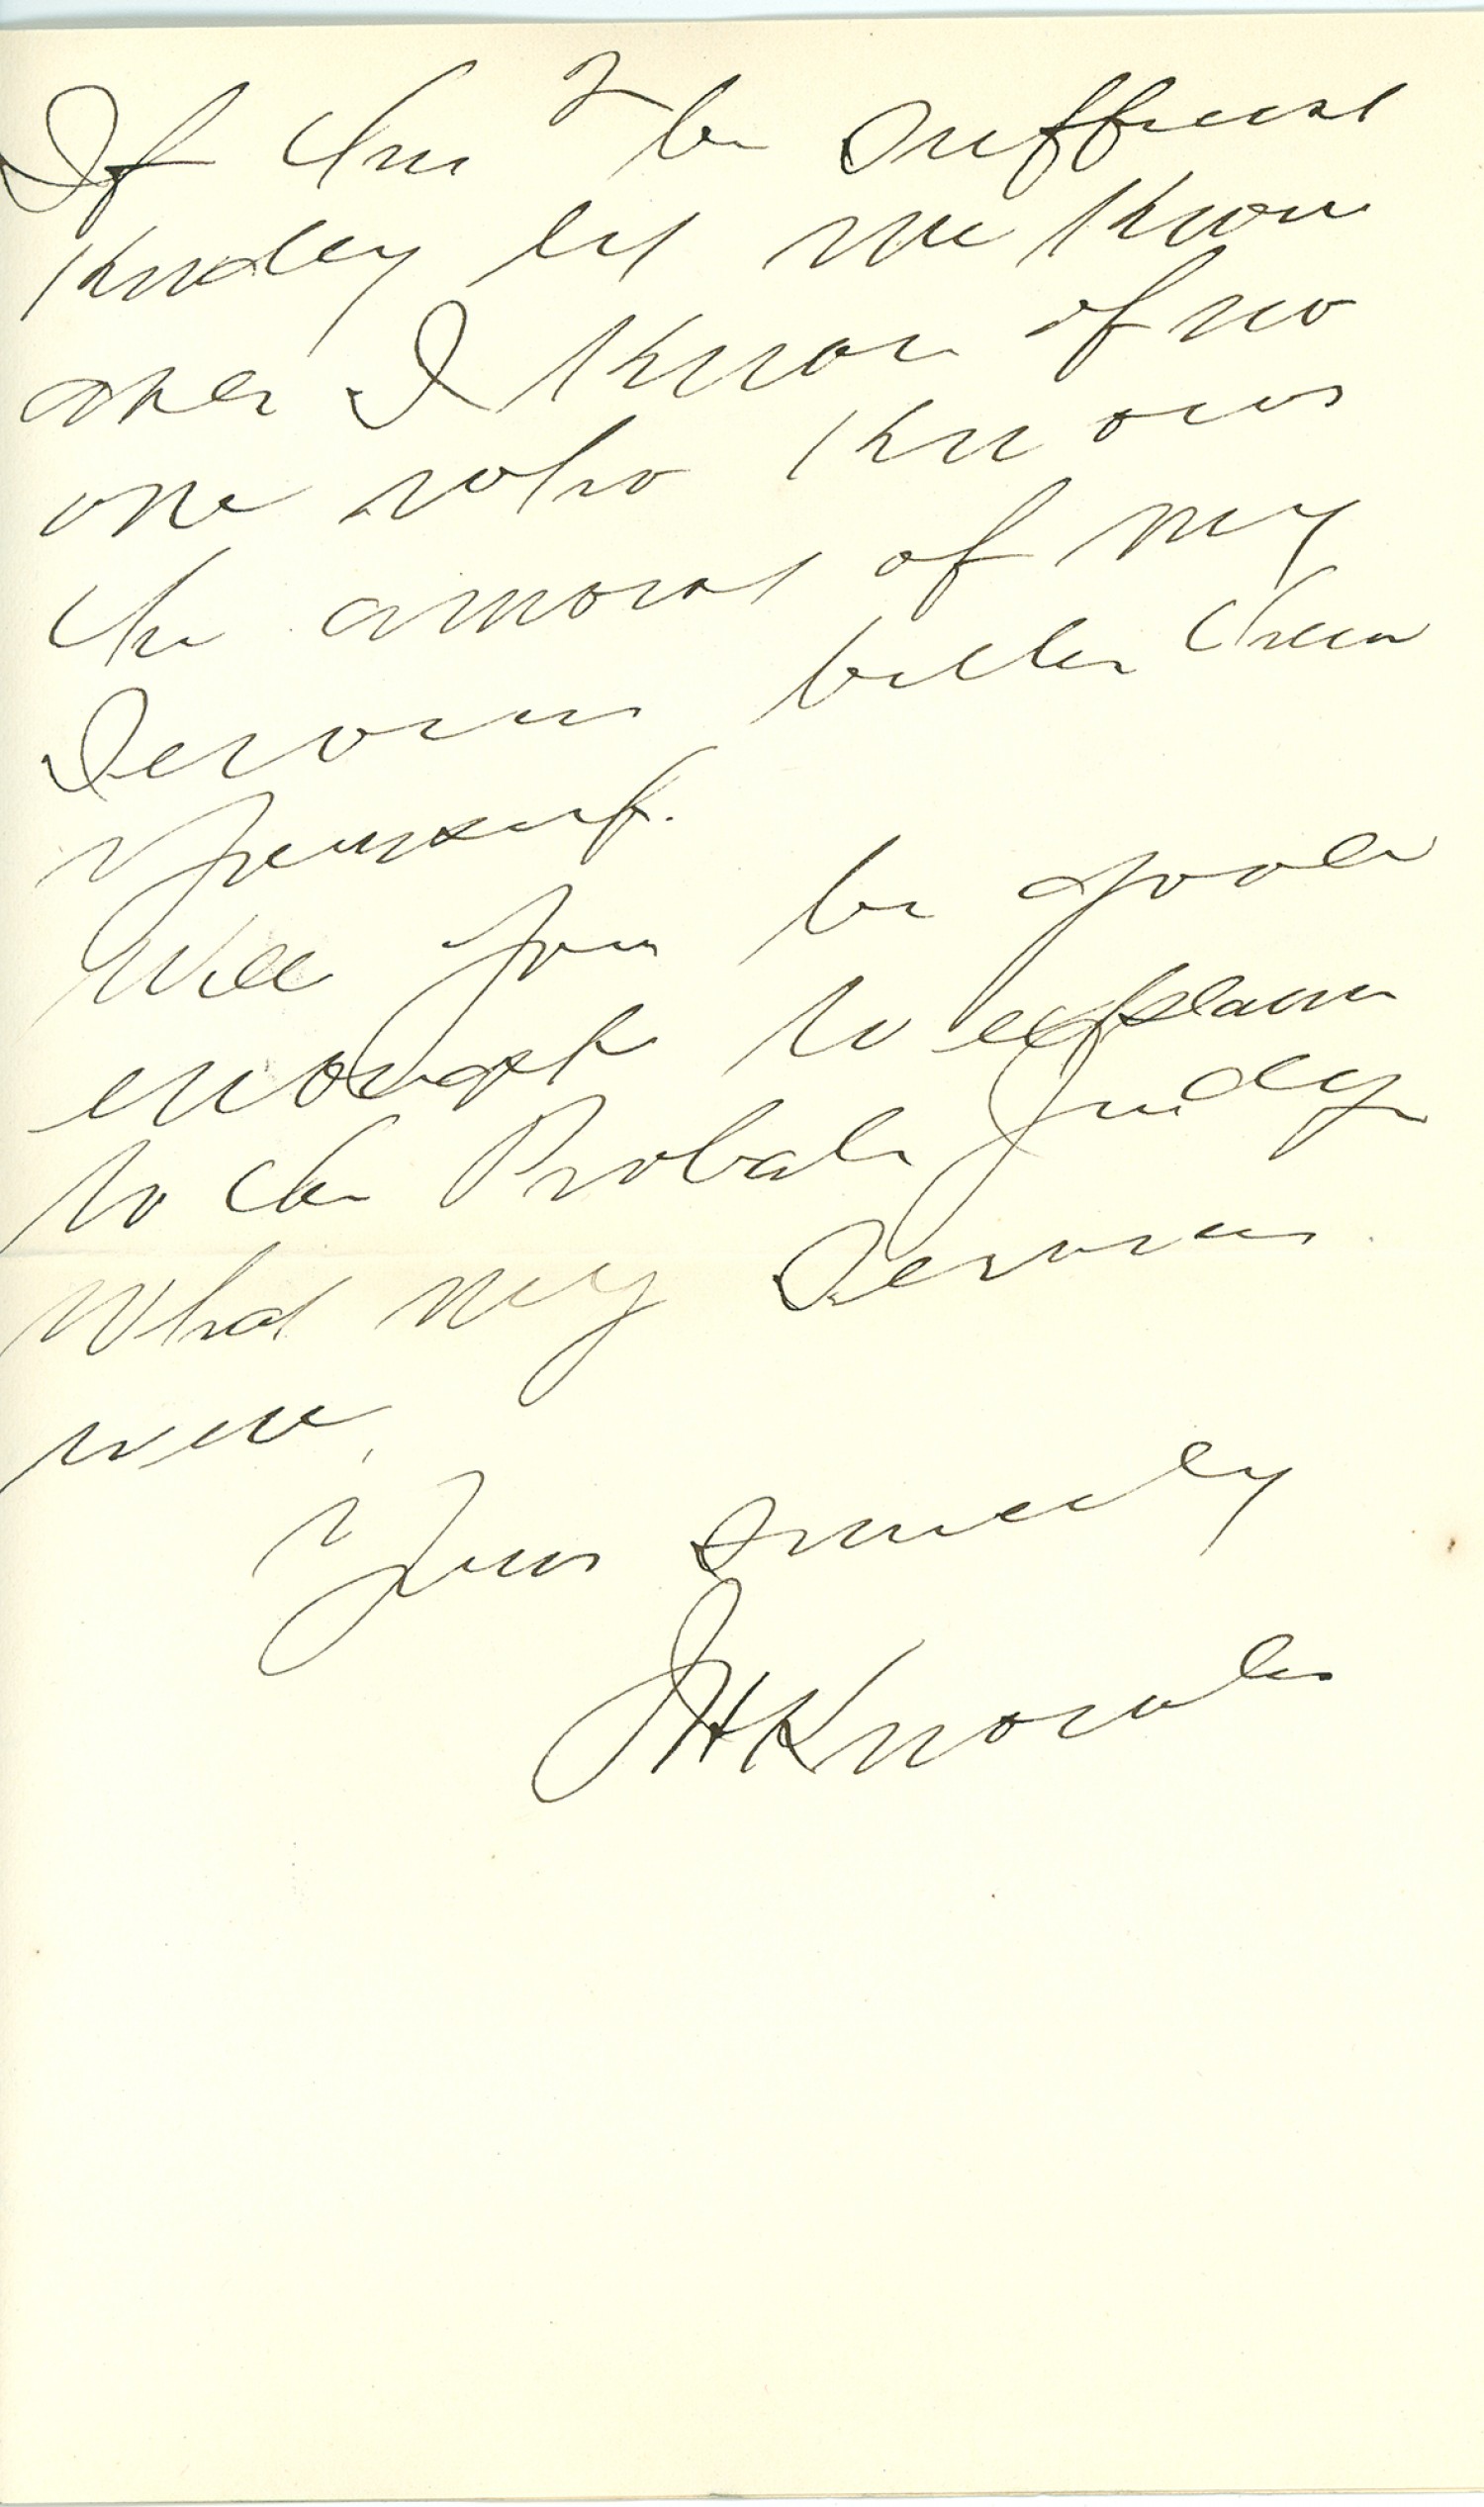 2
If this be sufficient
Kindly let me know
and I know of no
one who knows
the amount of my
Services better than
yourself.
Will you be good
enough to explain
to the Probate Judge
What my Services
were.
Yours Sincerely
JH Knowles